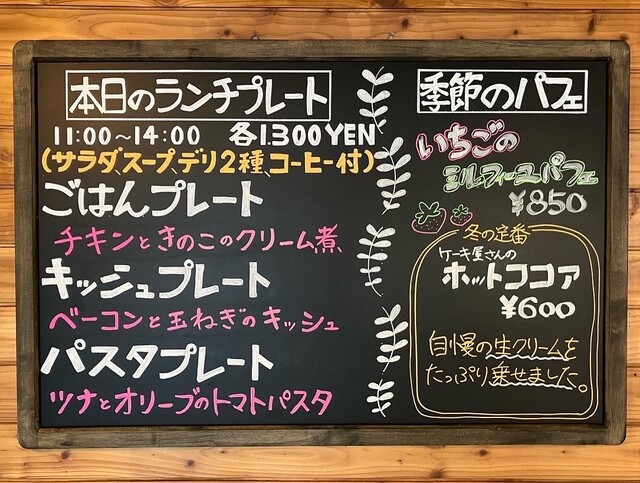 本日のランチプレート
11:00～14:00 各1.300YEN
(サラダ、スープ、デリ2種、コーヒー付)
ごはんプレート
チキンときのこのクリーム煮
キッシュプレート
ベーコンと玉ねぎのキッシュ
パスタプレート
ツナとオリーブのトマトパスタ
季節のパフェ
いちごの
ミルフィーユパフェ
¥850
冬の定番
ケーキ屋さんの
ホットココア
¥600
自慢の生クリームを
たっぷり乗せました。